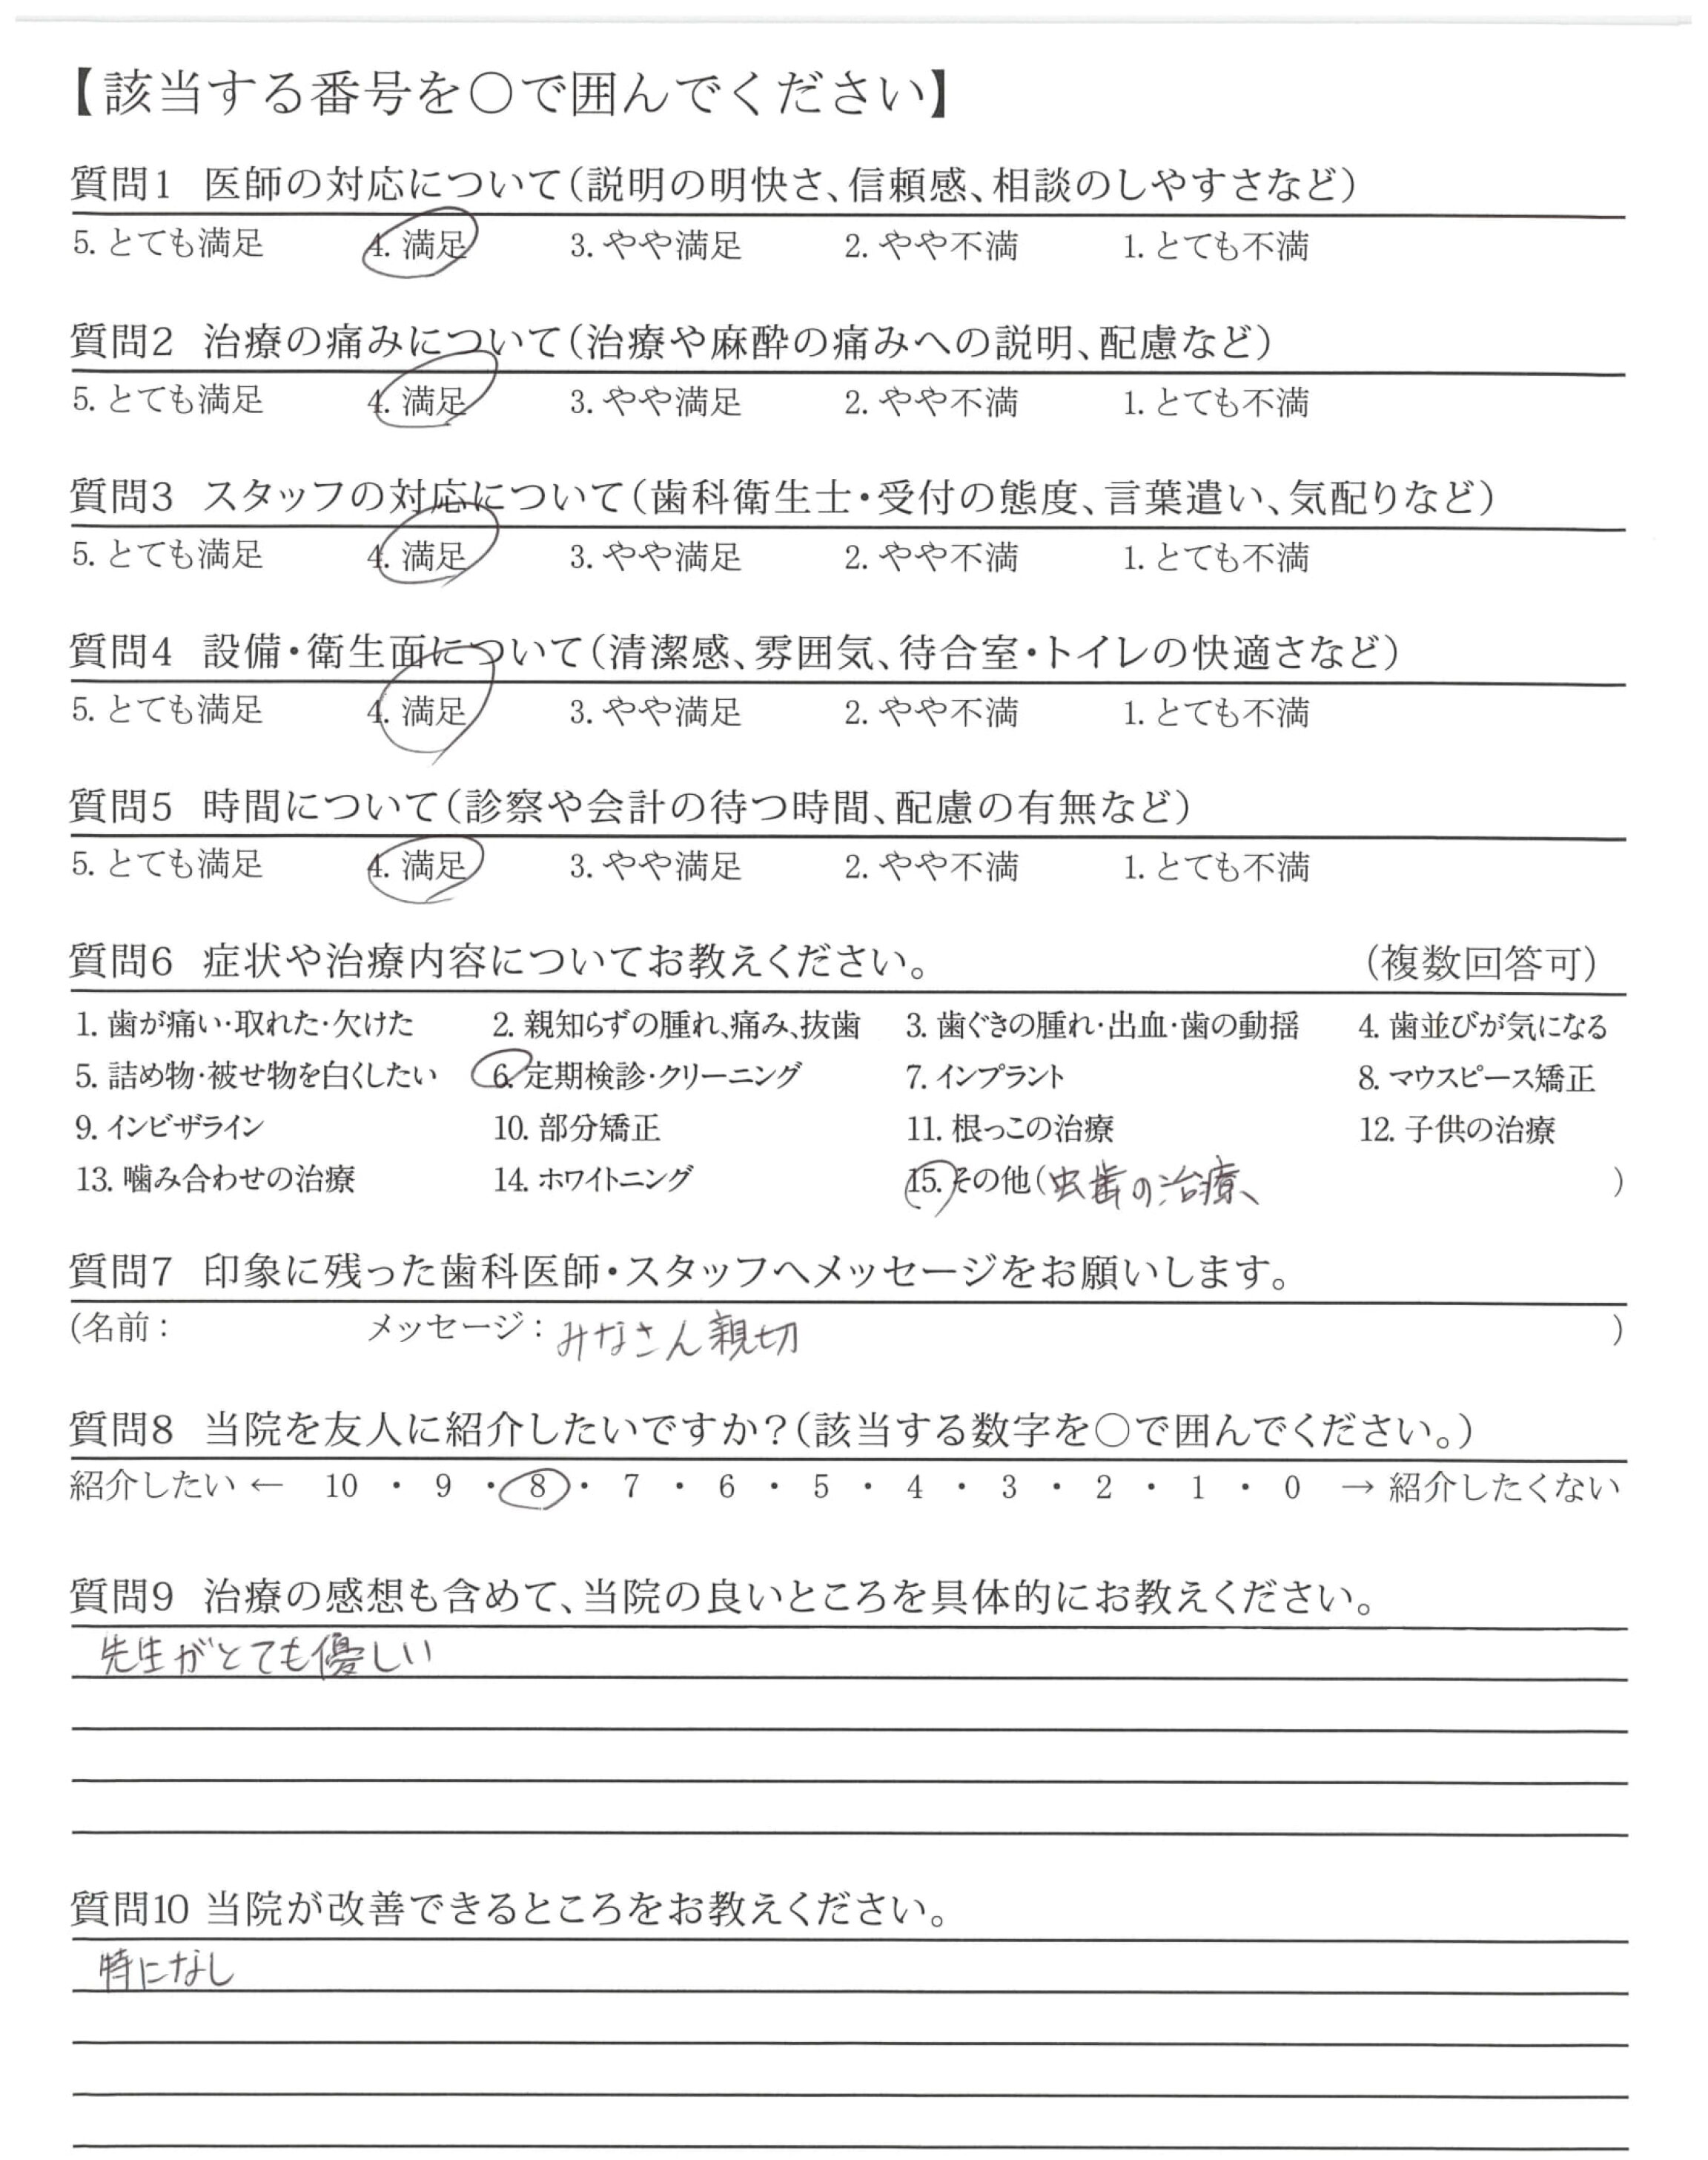 【該当する番号を○で囲んでください】
質問1 医師の対応について(説明の明快さ、信頼感、相談のしやすさなど)
5. とても満足 4. 満足 3. やや満足 2. やや不満 1. とても不満
質問2 治療の痛みについて(治療や麻酔の痛みへの説明、配慮など)
5. とても満足 4. 満足 3. やや満足 2. やや不満 1. とても不満
質問3 スタッフの対応について(歯科衛生士・受付の態度、言葉遣い、気配りなど)
5. とても満足 4. 満足 3. やや満足 2. やや不満 1. とても不満
質問4 設備・衛生面について(清潔感、雰囲気、待合室・トイレの快適さなど)
5. とても満足 4. 満足 3. やや満足 2. やや不満 1. とても不満
質問5 時間について(診察や会計の待つ時間、配慮の有無など)
5. とても満足 4. 満足 3. やや満足 2. やや不満 1. とても不満
質問6 症状や治療内容についてお教えください。 (複数回答可)
1. 歯が痛い・取れた・欠けた 2. 親知らずの腫れ、痛み、抜歯 3. 歯ぐきの腫れ・出血・歯の動揺 4. 歯並びが気になる
5. 詰め物・被せ物を白くしたい 6. 定期検診・クリーニング 7. インプラント 8. マウスピース矯正
9. インビザライン 10. 部分矯正 11. 根っこの治療 12. 子供の治療
13. 噛み合わせの治療 14. ホワイトニング 15. その他(虫歯の治療、 )
質問7 印象に残った歯科医師・スタッフへメッセージをお願いします。
(名前: メッセージ: みなさん親切 )
質問8 当院を友人に紹介したいですか?(該当する数字を○で囲んでください。)
紹介したい ← 10 ・ 9 ・ 8 ・ 7 ・ 6 ・ 5 ・ 4 ・ 3 ・ 2 ・ 1 ・ 0 → 紹介したくない
質問9 治療の感想も含めて、当院の良いところを具体的にお教えください。
先生がとても優しい
質問10 当院が改善できるところをお教えください。
特になし